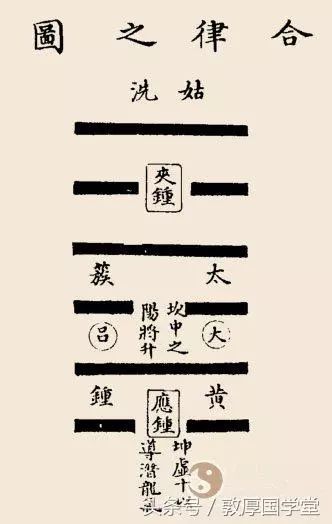 合律之圖
姑洗
夾鍾
太蔟
大呂
坎中之
陽將升
黃鍾
應鍾
坤虛十以
導潛龍氣
头条号 / 敦厚国学堂